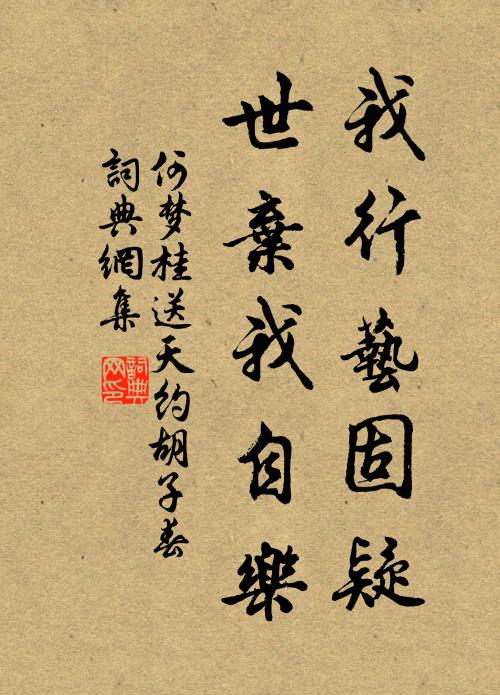 我行藝固疑
世棄我自樂
何梦桂送天約胡子春
詞典網集
詞典网印